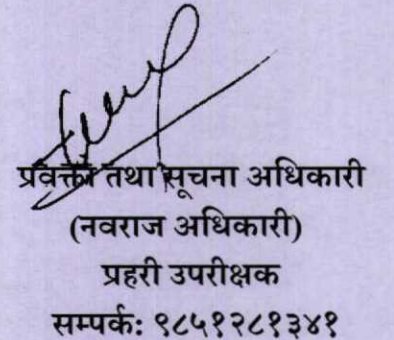 प्रवक्ता तथा सूचना अधिकारी
(नवराज अधिकारी)
प्रहरी उपरीक्षक
सम्पर्क: ९८५१२८१३४१